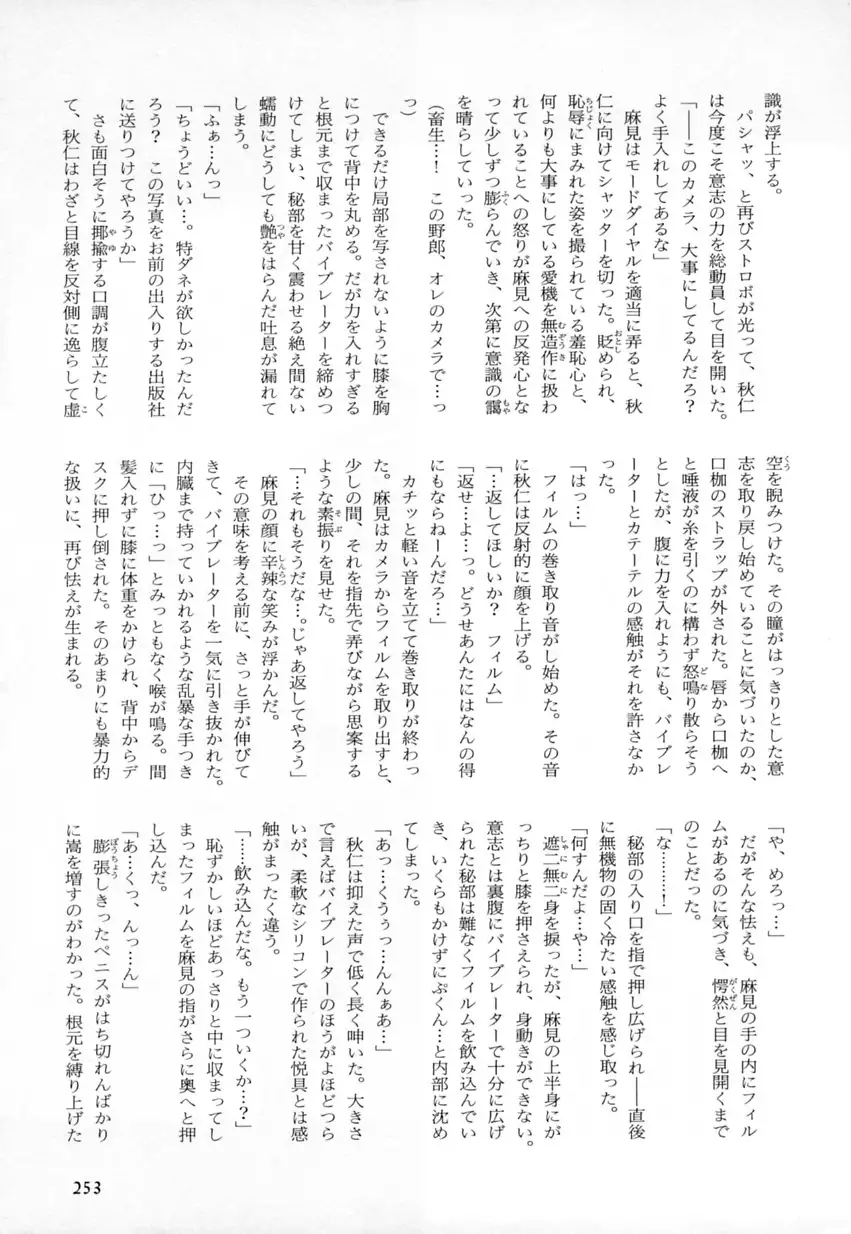 識が浮上する。
　パシャッ、と再びストロボが光って、秋仁
は今度こそ意志の力を総動員して目を開いた。
「――このカメラ、大事にしてるんだろ?
よく手入れしてあるな」
　麻見はモードダイヤルを適当に弄ると、秋
仁に向けてシャッターを切った。貶められ、
恥辱にまみれた姿を撮られている羞恥心と、
何よりも大事にしている愛機を無造作に扱わ
れていることへの怒りが麻見への反発心とな
って少しずつ膨らんでいき、次第に意識の靄
を晴らしていった。
(畜生…! この野郎、オレのカメラで…っ
っ)
　できるだけ局部を写されないように膝を胸
につけて背中を丸める。だが力を入れすぎる
と根元まで収まったバイブレーターを締めつ
けてしまい、秘部を甘く震わせる絶え間ない
蠕動にどうしても艶をはらんだ吐息が漏れて
しまう。
「ふぁ…んっ」
「ちょうどいい…。特ダネが欲しかったんだ
ろう? この写真をお前の出入りする出版社
に送りつけてやろうか」
　さも面白そうに揶揄する口調が腹立たしく
て、秋仁はわざと目線を反対側に逸らして虚
空を睨みつけた。その瞳がはっきりとした意
志を取り戻し始めていることに気づいたのか、
口枷のストラップが外された。唇から口枷へ
と唾液が糸を引くのに構わず怒鳴り散らそう
としたが、腹に力を入れようにも、バイブレ
ーターとカテーテルの感触がそれを許さなか
った。
「はっ…」
　フィルムの巻き取り音がし始めた。その音
に秋仁は反射的に顔を上げる。
「…返してほしいか? フィルム」
「返せ…よ…っ。どうせあんたにはなんの得
にもならねーんだろ…」
　カチッと軽い音を立てて巻き取りが終わっ
た。麻見はカメラからフィルムを取り出すと、
少しの間、それを指先で弄びながら思案する
ような素振りを見せた。
「…それもそうだな…。じゃあ返してやろう」
　麻見の顔に辛辣な笑みが浮かんだ。
　その意味を考える前に、さっと手が伸びて
きて、バイブレーターを一気に引き抜かれた。
内臓まで持っていかれるような乱暴な手つき
に「ひっ…っ」とみっともなく喉が鳴る。間
髪入れずに膝に体重をかけられ、背中からデ
スクに押し倒された。そのあまりにも暴力的
な扱いに、再び怯えが生まれる。
「や、めろっ…」
　だがそんな怯えも、麻見の手の内にフィル
ムがあるのに気づき、愕然と目を見開くまで
のことだった。
「な………!」
　秘部の入り口を指で押し広げられ――直後
に無機物の固く冷たい感触を感じ取った。
「何すんだよ…や…」
　遮二無二身を捩ったが、麻見の上半身にが
っちりと膝を押さえられ、身動きができない。
意志とは裏腹にバイブレーターで十分に広げ
られた秘部は難なくフィルムを飲み込んでい
き、いくらもかけずにぷくん…と内部に沈め
てしまった。
「あっ…くうぅっ…んんぁあ…」
　秋仁は抑えた声で低く長く呻いた。大きさ
で言えばバイブレーターのほうがよほどつら
いが、柔軟なシリコンで作られた悦具とは感
触がまったく違う。
「……飲み込んだな。もう一ついくか…?」
　恥ずかしいほどあっさりと中に収まってし
まったフィルムを麻見の指がさらに奥へと押
し込んだ。
「あ…くっ、んっ…ん」
　膨張しきったペニスがはち切れんばかり
に嵩を増すのがわかった。根元を縛り上げた
253